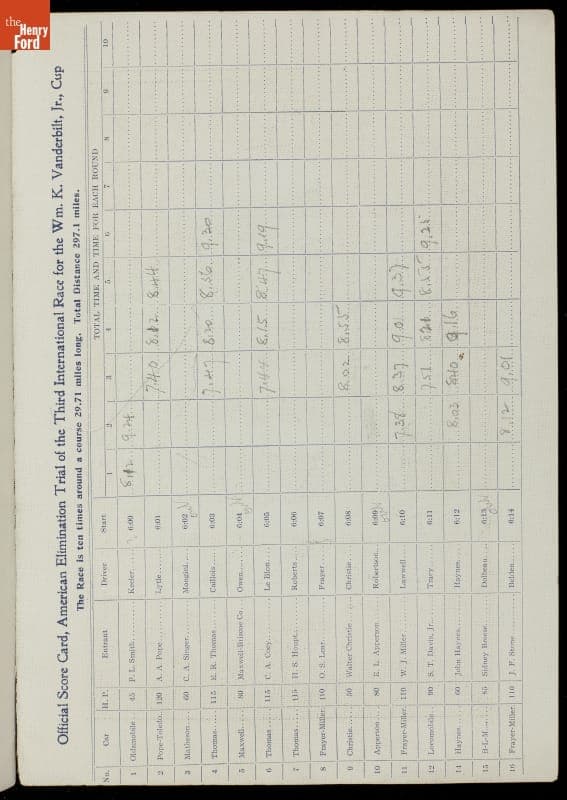 the
Henry
Ford
Official Score Card, American Elimination Trial of the Third International Race for the Wm. K. Vanderbilt, Jr., Cup
The Race is ten times around a course 29.71 miles long. Total Distance 297.1 miles.
TOTAL TIME AND TIME FOR EACH ROUND
No. Car H. P. Entrant Driver Start 1 2 3 4 5 6 7 8 9 10
1 Oldsmobile 45 P. L. Smith..... Keeler. 6:00 9.24
2 Pope-Toledo. 120 A. A. Pope..... Lytle.... 6:01 7.40 8.12 8.44
3 Matheson ... 60 C. A. Singer.... Mongini.... 6:02
4 Thomas..... 115 E. R. Thomas.... Caillois... 6:03 7.47 8.20 8.56 9.30
5 Maxwell..... 80 Maxwell-Briscoe Co. Owen..... 6:04
6 Thomas ..... 115 C. A. Coey..... Le Blon.... 6:05 7.44 8.15 8.47 9.19
7 Thomas..... 115 H. S. Houpt.... Roberts.... 6:06
8 Frayer-Miller. 110 O. S. Lear..... Frayer..... 6:07
9 Christie..... 50 Walter Christie ... Christie.... 6:08 8.02 8.55
10 Apperson.... 80 E. L. Apperson... Robertson.. 6:09
11 Frayer-Miller. 110 W. J. Miller.... Lawwell... 6:10 7.38 8.37 9.01 9.37
12 Locomobile.. 90 S. T. Davis, Jr... Tracy..... 6:11 7.51 8.55 9.25
14 Haynes..... 60 John Haynes.... Haynes.... 6:12 8.03 8.40 9.16
15 B-L-M..... 85 Sidney Breese... Dolbeau... 6:13
16 Frayer-Miller. 110 J. F. Stone..... Belden.... 6:14 8.12 9.01